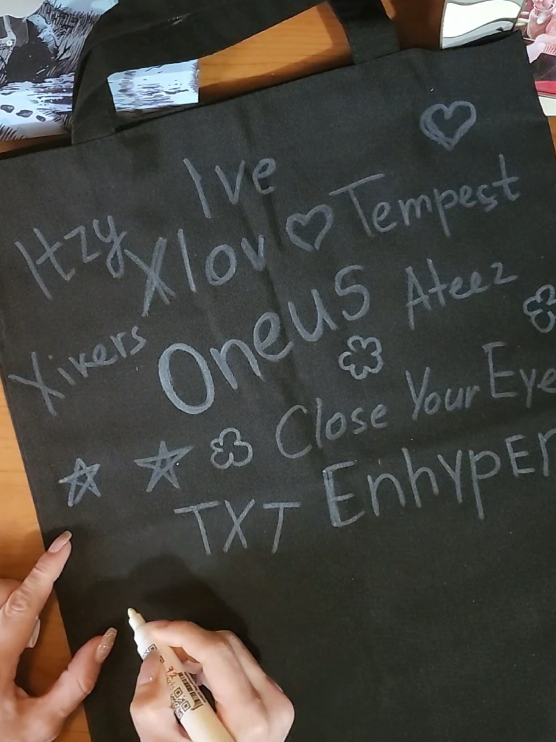 Ive
Itzy
Xlov
Tempest
Xikers
Oneus
Ateez
Close Your Eye
TXT
Enhypen